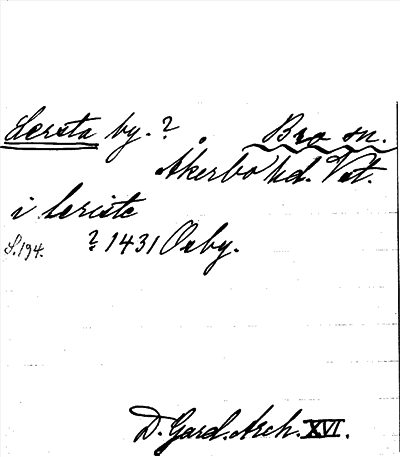 Lersta by. ? Bro sn.
Åkerbo hd. Vstm.
i leriste
S. 194. ? 1431 Oxby.
D. Gard. Arch. XVI.